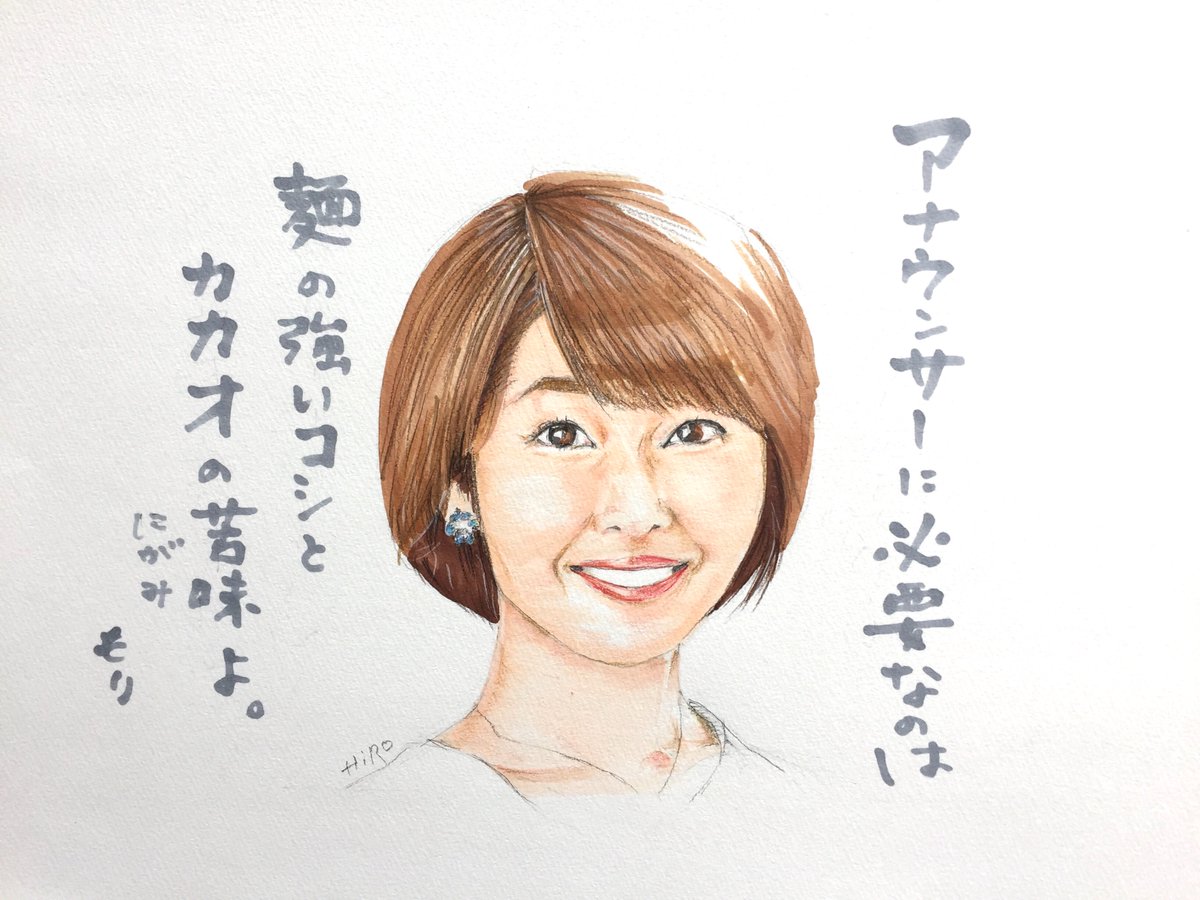 アナウンサーに必要なのは
麺の強いコシと
カカオの苦味よ。
にがみ
もり
HiRO